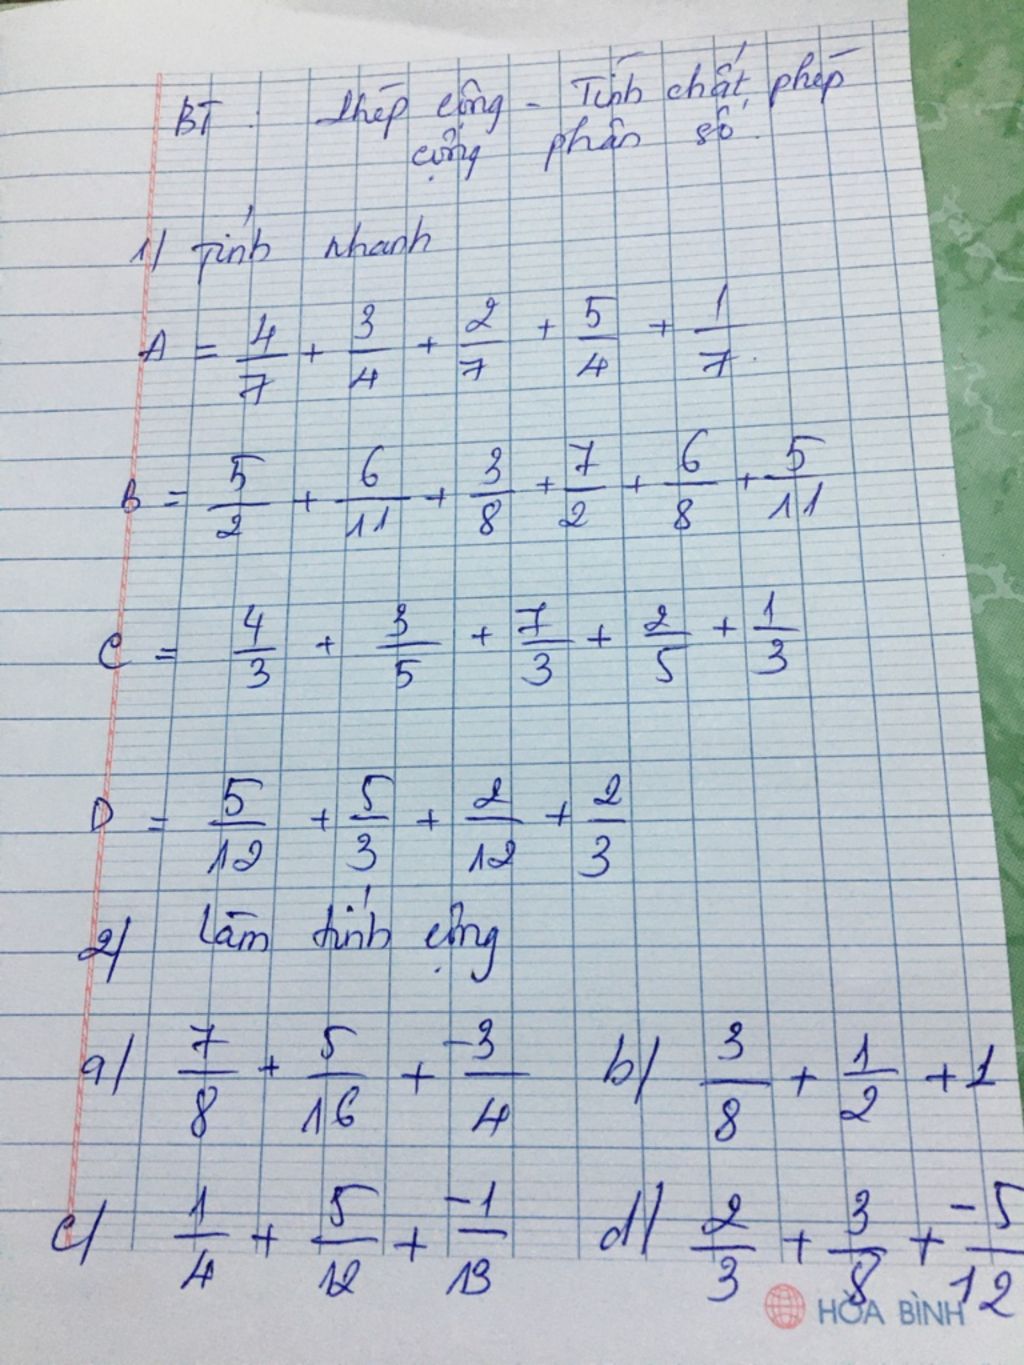 BT : Phép cộng - Tính chất phép
cộng phân số.
1/ Tính nhanh
A = 4/7 + 3/4 + 2/7 + 5/4 + 1/7.
B = 5/2 + 6/11 + 3/8 + 7/2 + 6/8 + 5/11
C = 4/3 + 3/5 + 7/3 + 2/5 + 1/3
D = 5/12 + 5/3 + 2/12 + 2/3
2/ Làm tính cộng
a/ 7/8 + 5/16 + -3/4 b/ 3/8 + 1/2 + 1
c/ 1/4 + 5/12 + -1/13 d/ 2/3 + 3/8 + -5/12
HÒA BÌNH